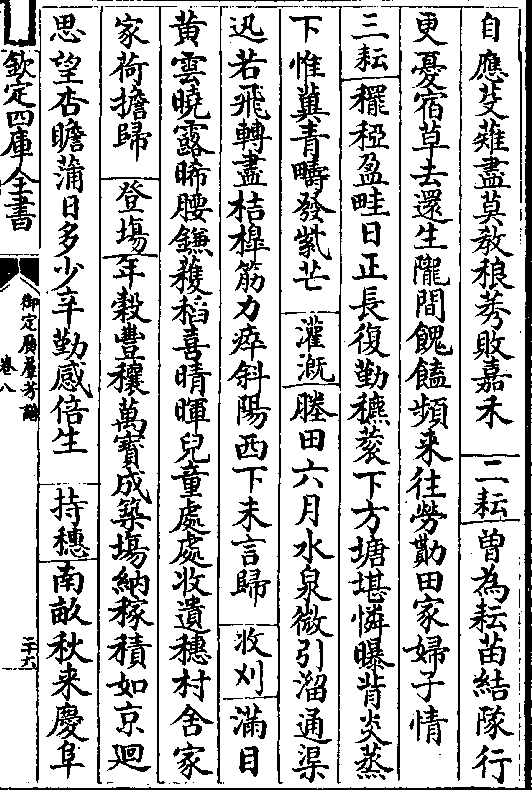 自應芟薙盡莫教稂莠敗嘉禾　二耘　曾為耘苗結隊行
更憂宿草去還生隴間餽饁頻来往勞勩田家婦子情
三耘　穲稏盈疇日正長復勤穮蔉下方塘堪憐曝背炎蒸
下惟冀青疇發紫芒　灌溉　塍田六月水泉微引溜通渠
迅若飛轉盡桔槹筋力瘁斜陽西下未言歸　收刈　滿目
黄雲曉露晞腰鎌穫稻喜晴暉兒童處處收遺穗村舍家
家荷擔歸　登場　年榖豐穰萬寶成築場納稼積如京廻
思望杏瞻蒲日多少辛勤感倍生　持穗　南畝秋来慶阜
欽定四庫全書
御定廣羣芳譜
卷八